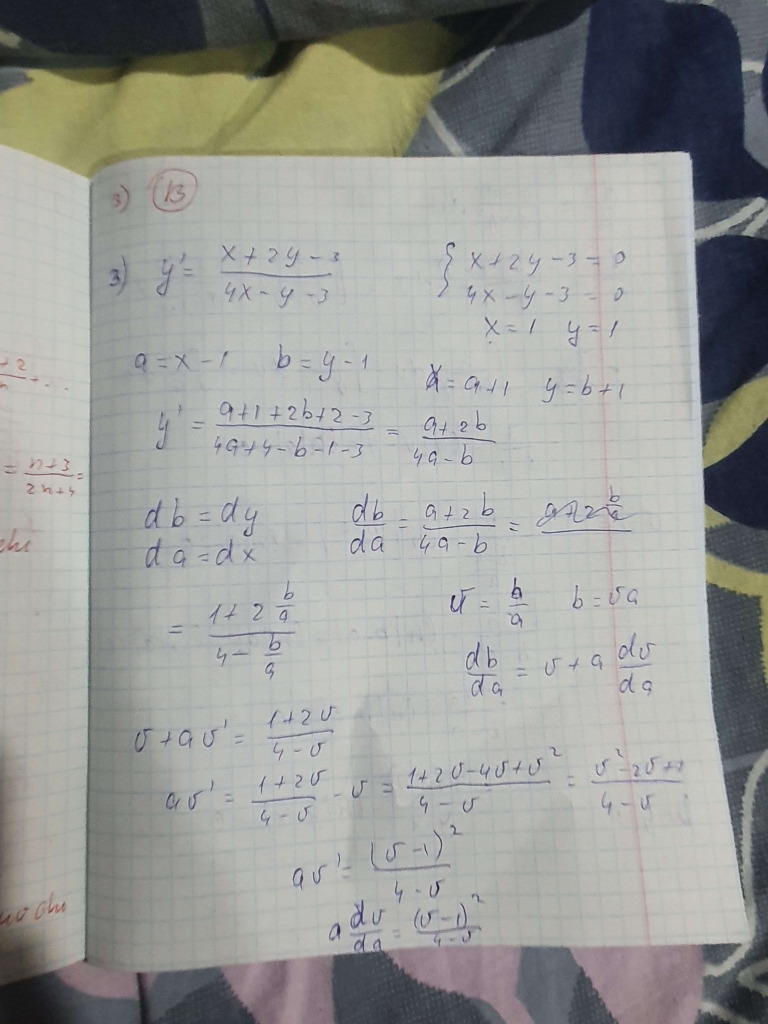 3) 13
3) y' = (x+2y-3)/(4x-y-3)
{ x+2y-3=0
4x-y-3=0
x=1 y=1
a=x-1 b=y-1
x=a+1 y=b+1
y' = (a+1+2b+2-3)/(4a+4-b-1-3) = (a+2b)/(4a-b)
db=dy db/da = (a+2b)/(4a-b) =
da=dx
= (1+2 b/a)/(4- b/a)
v = b/a b=va
db/da = v+a dv/da
v+av' = (1+2v)/(4-v)
av' = (1+2v)/(4-v) - v = (1+2v-4v+v²)/(4-v) = (v²-2v+1)/(4-v)
av' = (v-1)²/(4-v)
a dv/da = (v-1)²/(4-v)
+2
= (n+3)/(2n+4) =